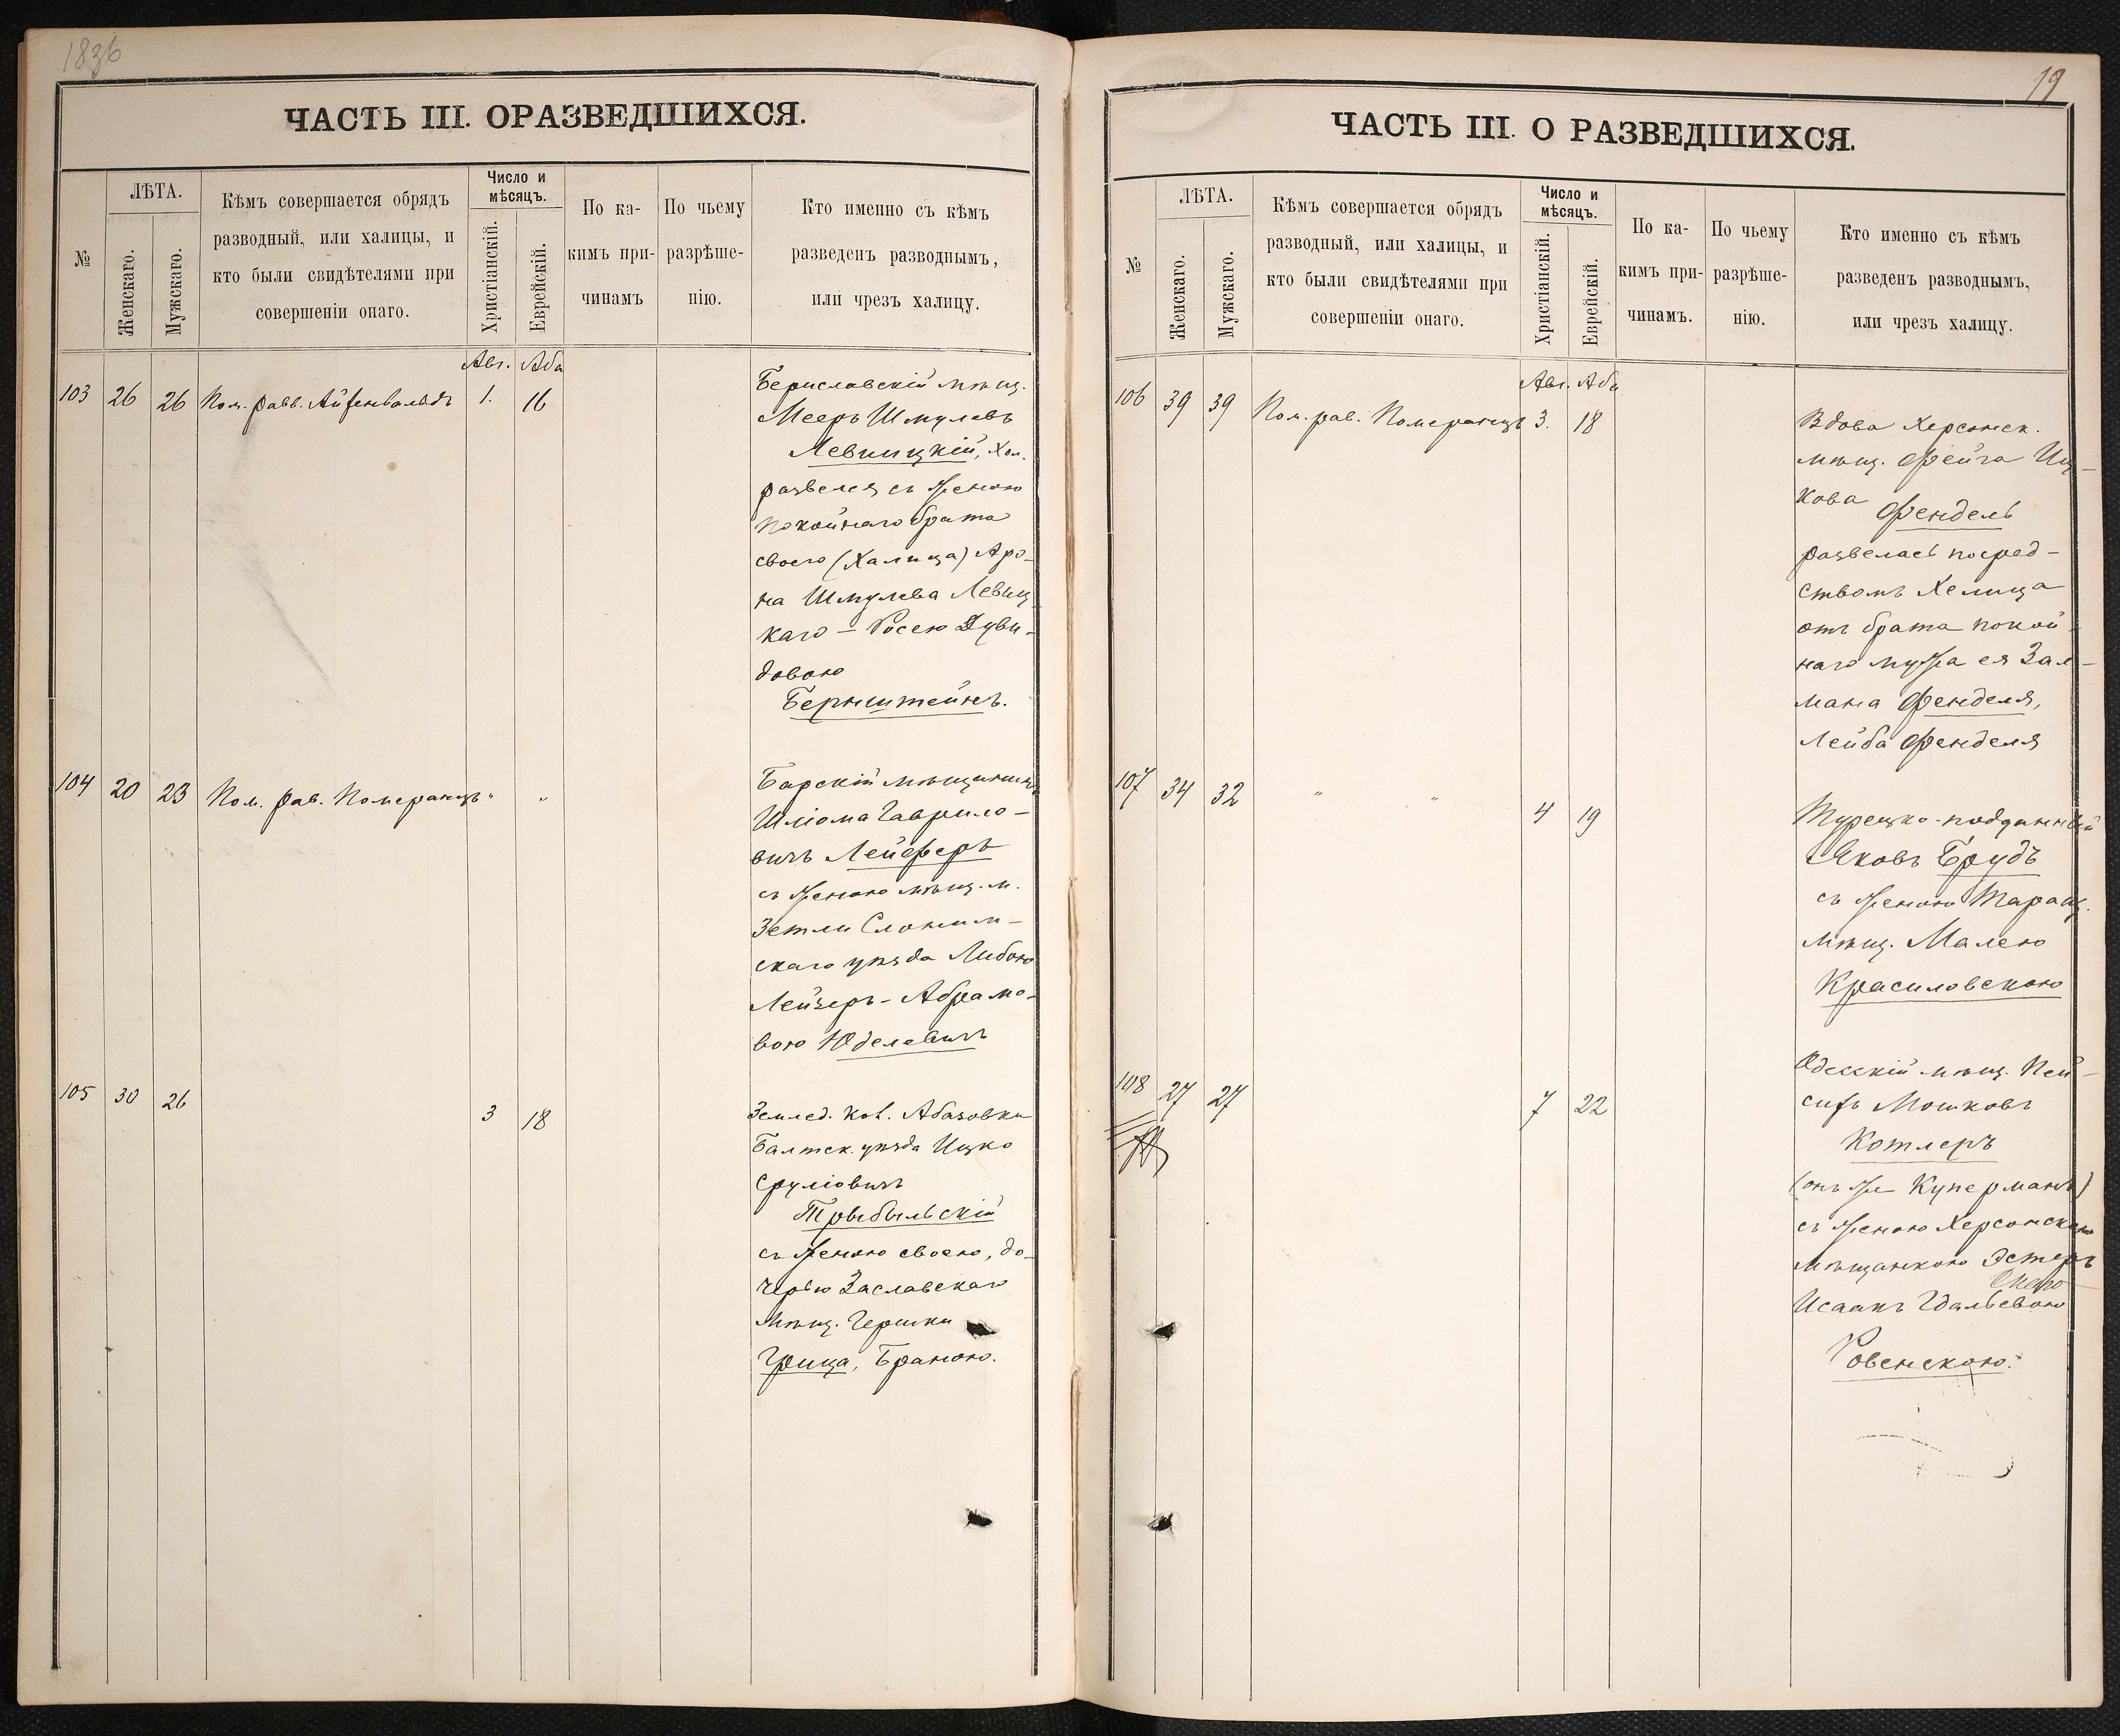 1836
ЧАСТЬ III. О РАЗВЕДШИХСЯ.
№
ЛѢТА.
Женскаго.
Мужскаго.
Кѣмъ совершается обрядъ
разводный, или халицы, и
кто были свидѣтелями при
совершеніи онаго.
Число и
мѣсяцъ.
Христіанскій.
Еврейскій.
По ка-
кимъ при-
чинамъ
По чьему
разрѣше-
нію.
Кто именно съ кѣмъ
разведенъ разводнымъ,
или чрезъ халицу.
Авг. Аба
103 26 26 Пом. равв. Айзенвальдъ 1. 16
Бериславскій мѣщ.
Мееръ Шмулевъ
Левицкій, Хол.
развелся съ женою
покойнаго брата
своего (Халица) Аро-
на Шмулева Левиц
каго - Росею Дуви-
довою
Бернштейнъ.
104 20 23 Пом. рав. Померанцъ " "
Барскій мѣщанинъ
Шлiома Гаврило-
вичъ Лейферъ
съ женою мѣщ. м.
Зетли Слоним-
скаго уѣзда Либою
Лейзеръ-Абрамо-
вою Юделевичъ
105 30 26 3 18
Землед. кол. Абазовки
Балтск. уѣзда Ицко
Сруліовичъ
Трыбыльскій
съ женою своею, до-
черью Заславскаго
мѣщ. Гершки
Грица, Браною.
19
ЧАСТЬ III. О РАЗВЕДШИХСЯ.
№
ЛѢТА.
Женскаго.
Мужскаго.
Кѣмъ совершается обрядъ
разводный, или халицы, и
кто были свидѣтелями при
совершеніи онаго.
Число и
мѣсяцъ.
Христіанскій.
Еврейскій.
По ка-
кимъ при-
чинамъ.
По чьему
разрѣше-
нію.
Кто именно съ кѣмъ
разведенъ разводнымъ,
или чрезъ халицу.
Авг. Аба
106 39 39 Пом. рав. Померанцъ 3. 18
Вдова Херсонск.
мѣщ. Фейга Иц-
кова Фендель
развелась посред-
ствомъ Хелица
отъ брата покой-
наго мужа ея Зал-
мана Фенделя,
Лейба Фенделя
107 34 32 " " 4 19
Турецко-подданный
Яковъ Брудъ
съ женою Таращ.
мѣщ. Малею
Красиловскою
108 27 27 7 22
Одесскій мѣщ. Пей-
сихъ Мошковъ
Котлеръ
(онъ же Куперманъ)
съ женою Херсонскою
мѣщанкою Эстеръ
Исаакъ Гдальевою
Ровенскою.